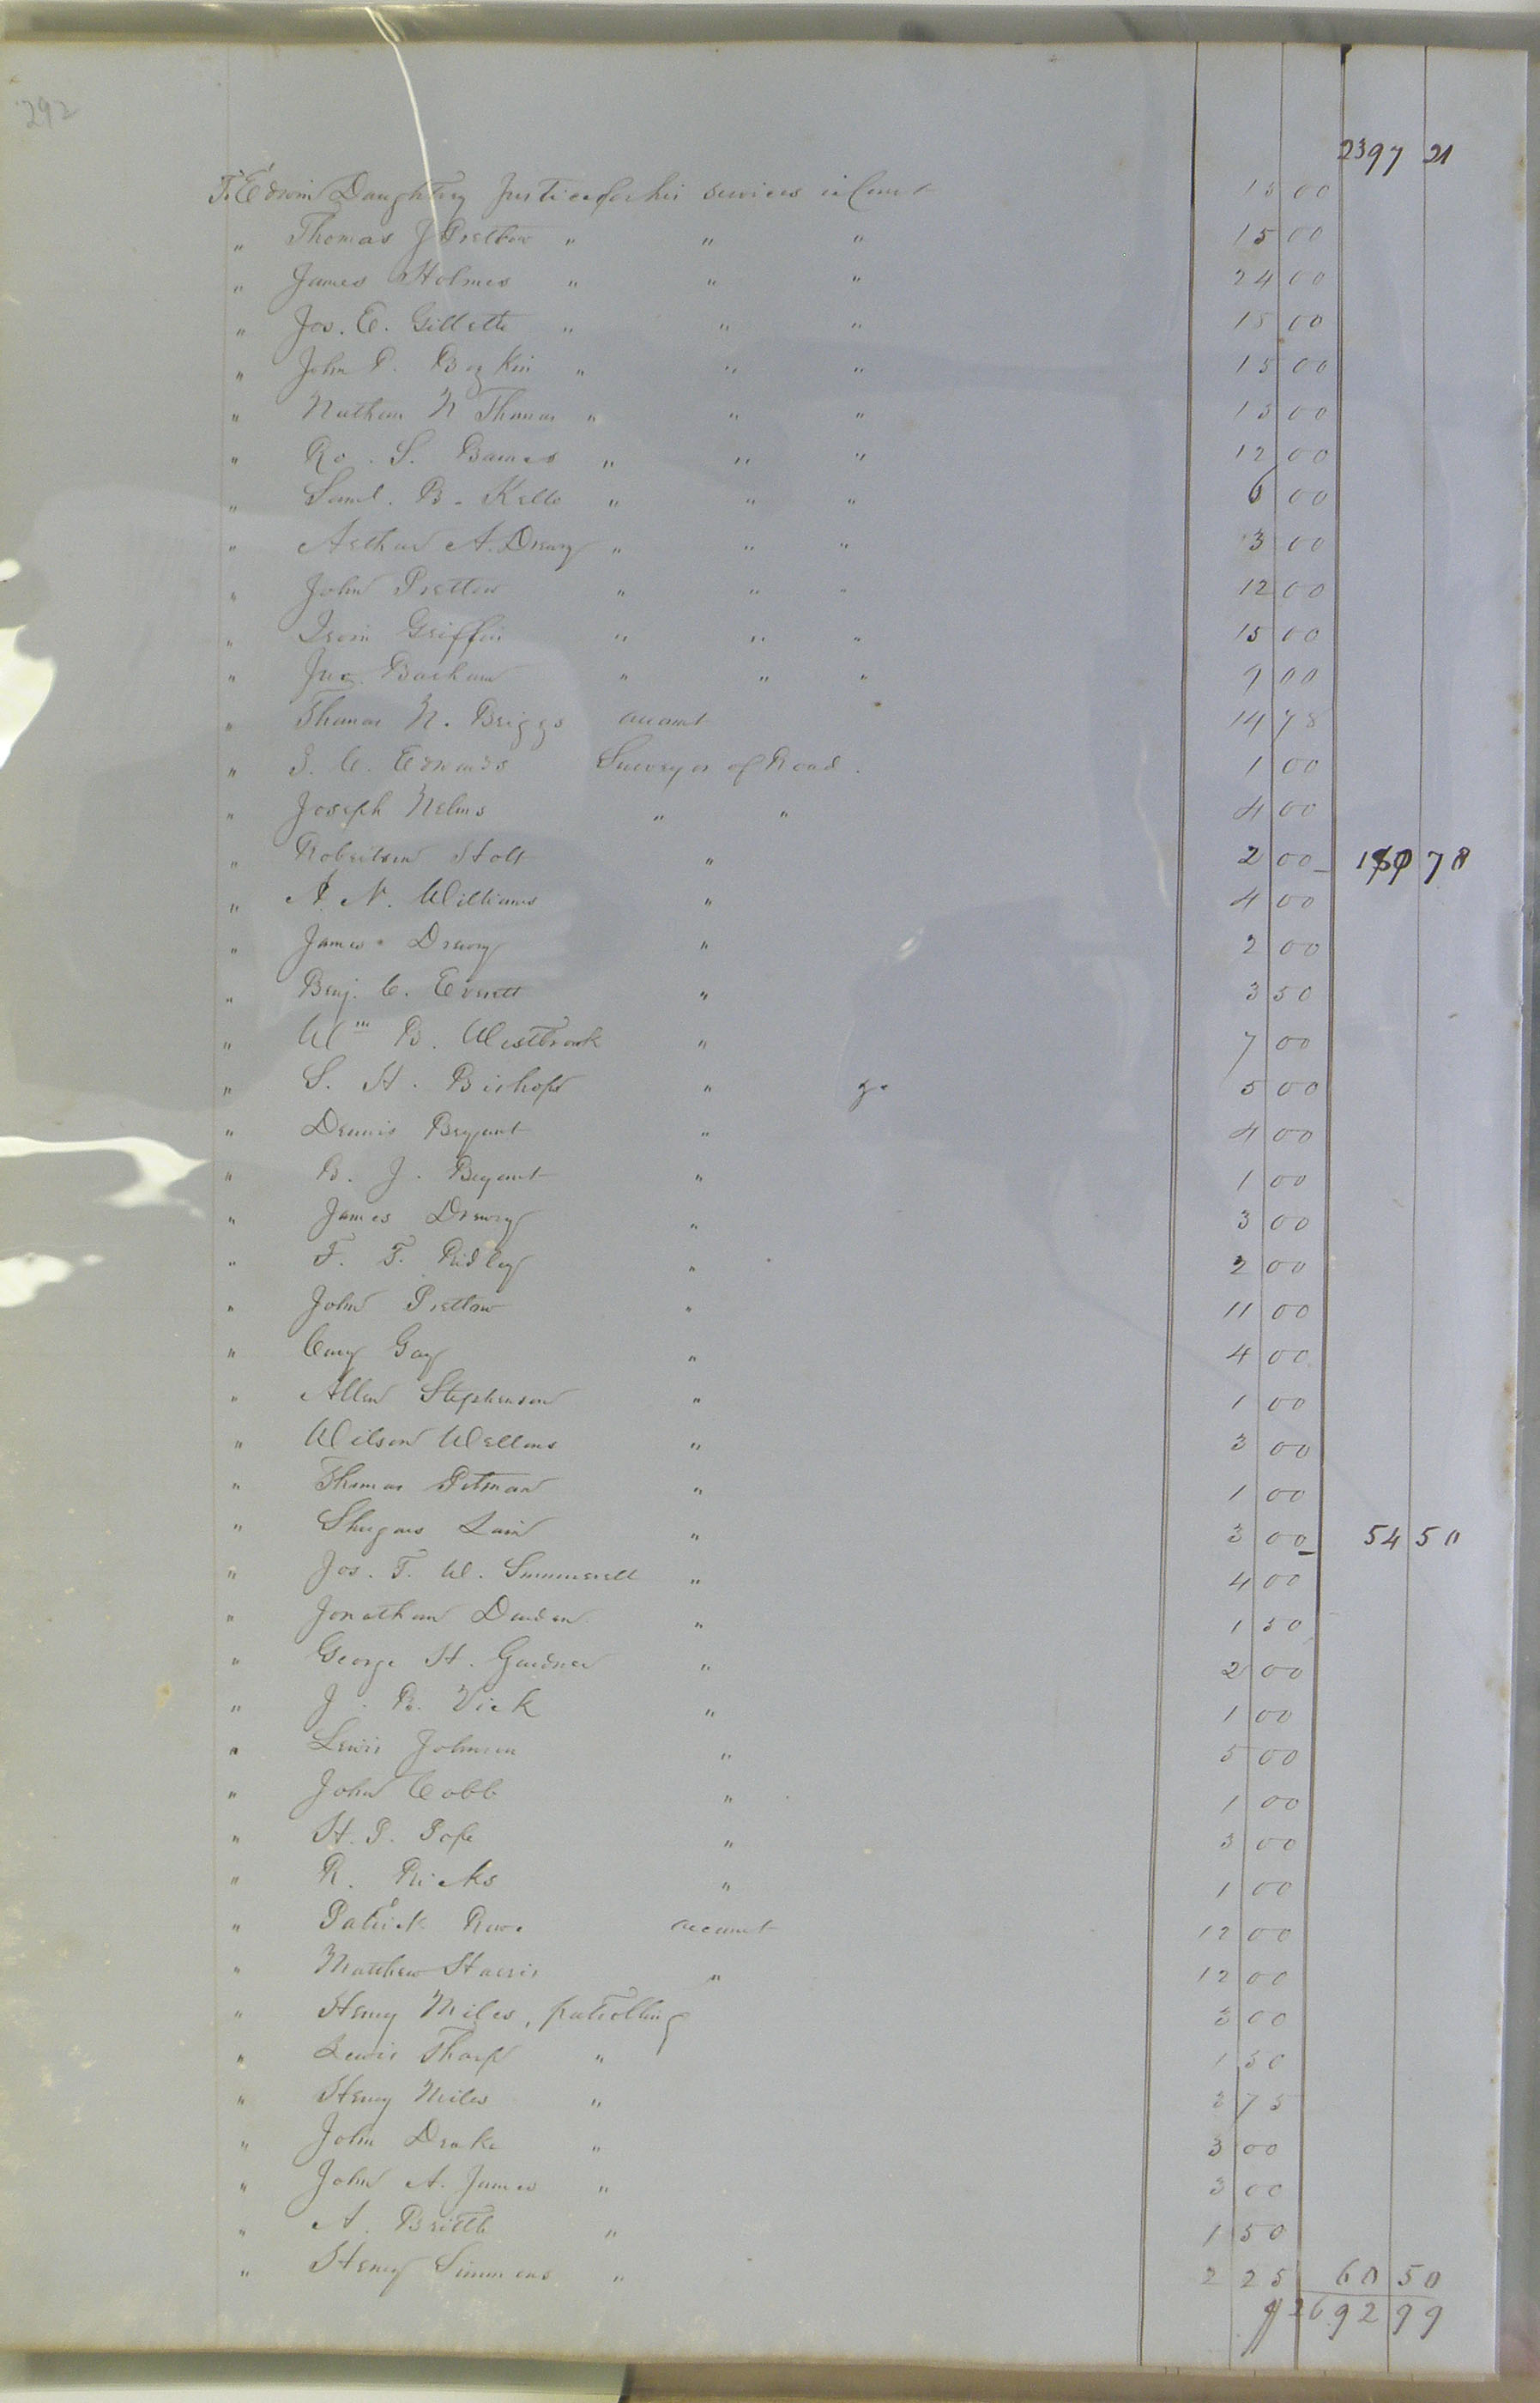 292
2397 21
To Edwin Daughtrey Justice for his services in Court 15 00
" Thomas J Pretlow " " " 15 00
" James Holmes " " " 24 00
" Jos. E. Gillette " " " 15 00
" John P. Boykin " " " 15 00
" Nathan N Thomas " " " 15 00
" Ro. S. Barnes " " " 12 00
" Saml. B. Kello " " " 6 00
" Arthur A. Drewry " " " 3 00
" John Pretlow " " " 12 00
" Irvin Griffin " " " 15 00
" Jno. Barham " " " 9 00
" Thomas N. Briggs account 14 78
" J. C. Edwards Surveyor of Road. 1 00
" Joseph Nelms " " 4 00
" Robertson Holt " 2 00 78
" A. N. Williams " 4 00
" James Drewry " 2 00
" Benj. C. Everett " 3 50
" Wm B. Westbrook " 7 00
" S. H. Bishop " 5 00
" Dennis Bryant " 4 00
" B. J. Bryant " 1 00
" James Drewry " 3 00
" F. T. Ridley " 2 00
" John Pretlow " 11 00
" Cary Gay " 4 00
" Allen Stephenson " 1 00
" Wilson Wellons " 3 00
" Thomas Pitman " 1 00
" Shugars Lain " 3 00 54 50
" Jos. T. W. Summerell " 4 00
" Jonathan Darden " 1 50
" George H. Gardner " 2 00
" J. R. Vick " 1 00
" Lewis Johnson " 5 00
" John Cobb " 1 00
" H. P. Pope " 3 00
" R. Ricks " 1 00
" Patrick Rowe account 12 00
" Matthew Harris " 12 00
" Henry Miles, patrolling 3 00
" Lewis Tharp " 1 50
" Henry Miles " 3 75
" John Drake " 3 00
" John A. James " 3 00
" A. Brittle " 1 50
" Henry Simmons " 2 25 60 50
$ 2692 99